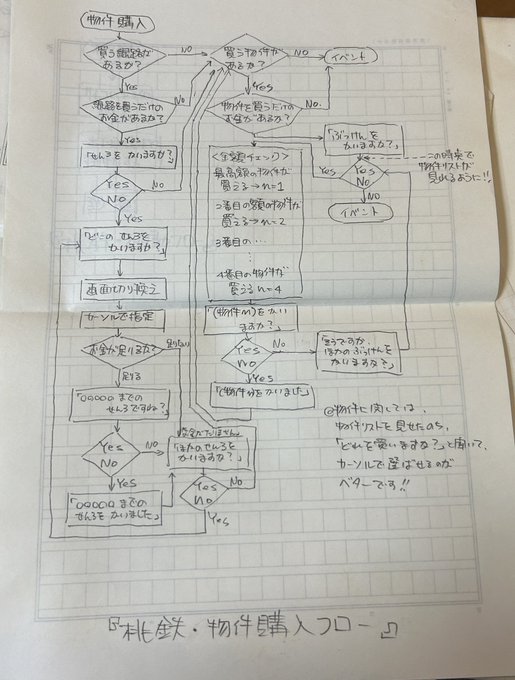 物件購入
買う線路が
あるか?
NO
買う物件が
あるか?
NO
イベント
Yes
線路を買うだけの
お金があるか?
No
Yes
物件を買うだけの
お金があるか?
NO
Yes
「せんろを かいますか?」
Yes
No
No
Yes
「どこの せんろを
かいますか?」
画面切り換え
カーソルで指定
お金が足りるか?
足りない
足りる
「○○○○までの
せんろですね?」
Yes
No
No
Yes
「○○○○までの
せんろをかいました」
お金がたりません
「ほかのせんろを
かいますか?」
Yes
No
No
Yes
<金額チェック>
最高額の物件が
買える→n=1
2番目の額の物件が
買える→n=2
3番目の…
⋮
4番目の物件が
買えるn=4
「(物件n)をかい
ますか?」
Yes
no
No
「そうですか
ほかのぶっけんを
かいますか?」
Yes
「(物件n)をかいました」
「ぶっけんを
かいますか?」
Yes
Yes
No
No
イベント
この時点で
物件リストが
見れるように!!
◎物件に関しては、
物件リストを見せたのち、
「どれを買いますか?」と聞いて、
カーソルで選ばせるのが
ベターです!!
『桃鉄・物件購入フロー』